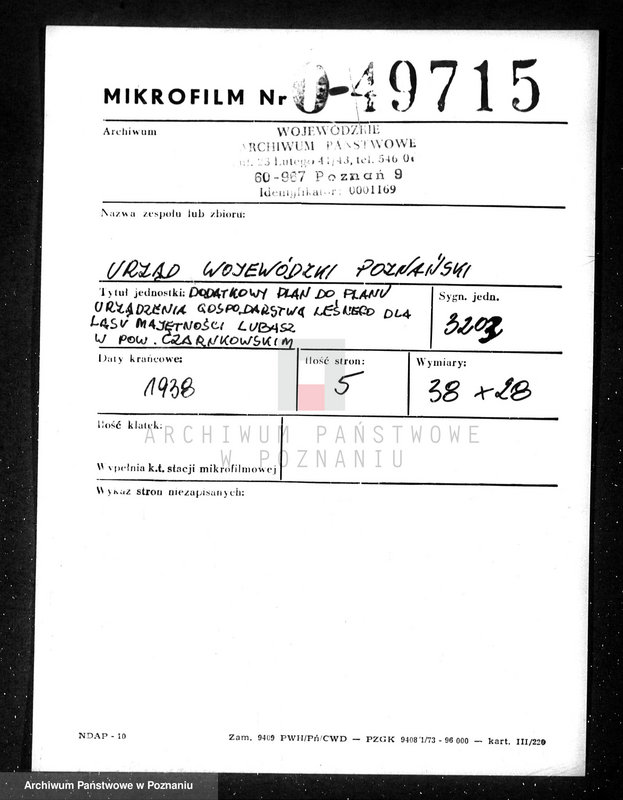 MIKROFILM Nr 0-49715
Archiwum
WOJEWÓDZKIE
ARCHIWUM PAŃSTWOWE
ul. 23 Lutego 41/43, tel. 546 0
60-967 Poznań 9
Identyfikator: 0001169
Nazwa zespołu lub zbioru:
URZĄD WOJEWÓDZKI POZNAŃSKI
Tytuł jednostki: DODATKOWY PLAN DO PLANU
URZĄDZENIA GOSPODARSTWA LEŚNEGO DLA
LASU MAJĘTNOŚCI LUBASZ
W POW. CZARNKOWSKIM
Sygn. jedn.
3203
Daty krańcowe:
1938
Ilość stron:
5
Wymiary:
38 x 28
Ilość klatek:
ARCHIWUM PAŃSTWOWE
W POZNANIU
Wypełnia k.t. stacji mikrofilmowej
Wykaz stron niezapisanych:
NDAP - 10
Zam. 9409 PWH/Pń/CWD — PZGK 9408/1/73 - 96 000 — kart. III/220
Archiwum Państwowe w Poznaniu